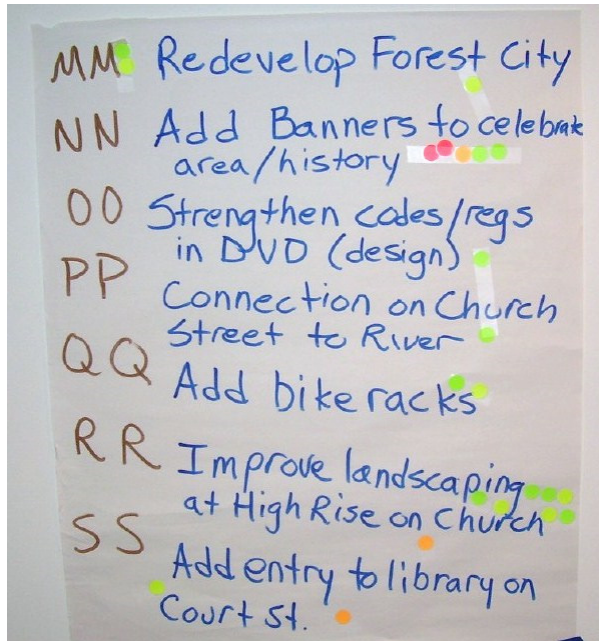 MM Redevelop Forest City
NN Add Banners to celebrate
area/history
OO Strengthen codes/regs
in DVD (design)
PP Connection on Church
Street to River
QQ Add bike racks
RR Improve landscaping
at High Rise on Church
SS Add entry to library on
Court St.